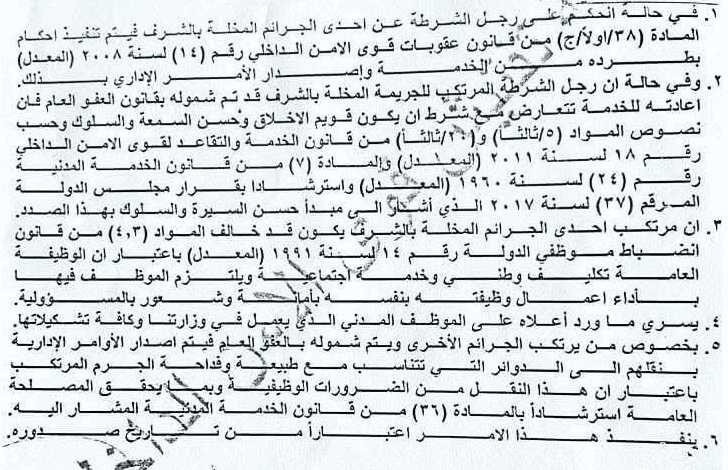 ١. في حالة الحكم على رجل الشرطة عن احدى الجرائم المخلة بالشرف فيتم تنفيذ احكام
المادة (٣٨/اولاً/ج) من قانون عقوبات قوى الامن الداخلي رقم (١٤) لسنة ٢٠٠٨ (المعدل)
بطرده من الخدمة وإصدار الأمر الإداري بذلك.
٢. وفي حالة ان رجل الشرطة المرتكب للجريمة المخلة بالشرف قد تم شموله بقانون العفو العام فان
اعادته للخدمة تتعارض مع شرط ان يكون قويم الاخلاق وحسن السمعة والسلوك وحسب
نصوص المواد (٥/ثالثاً) و(٢٠/ثالثاً) من قانون الخدمة والتقاعد لقوى الامن الداخلي
رقم ١٨ لسنة ٢٠١١ (المعدل) والمادة (٧) من قانون الخدمة المدنية
رقم (٢٤) لسنة ١٩٦٠ (المعدل) واسترشادا بقرار مجلس الدولة
المرقم (٣٧) لسنة ٢٠١٧ الذي أشار الى مبدأ حسن السيرة والسلوك بهذا الصدد.
٣. ان مرتكب احدى الجرائم المخلة بالشرف يكون قد خالف المواد (٤،٣) من قانون
انضباط موظفي الدولة رقم ١٤ لسنة ١٩٩١ (المعدل) باعتبار ان الوظيفة
العامة تكليف وطني وخدمة اجتماعية ويلتزم الموظف فيها
بأداء اعمال وظيفته بنفسه بأمانة وشعور بالمسؤولية.
٤. يسري ما ورد أعلاه على الموظف المدني الذي يعمل في وزارتنا وكافة تشكيلاتها.
٥. بخصوص من يرتكب الجرائم الأخرى ويتم شموله بالعفو العام فيتم اصدار الأوامر الإدارية
بنقلهم الى الدوائر التي تتناسب مع طبيعة وفداحة الجرم المرتكب
باعتبار ان هذا النقل من الضرورات الوظيفية وبما يحقق المصلحة
العامة استرشاداً بالمادة (٣٦) من قانون الخدمة المدنية المشار اليه.
٦. ينفذ هذا الامر اعتباراً من تاريخ صدوره.